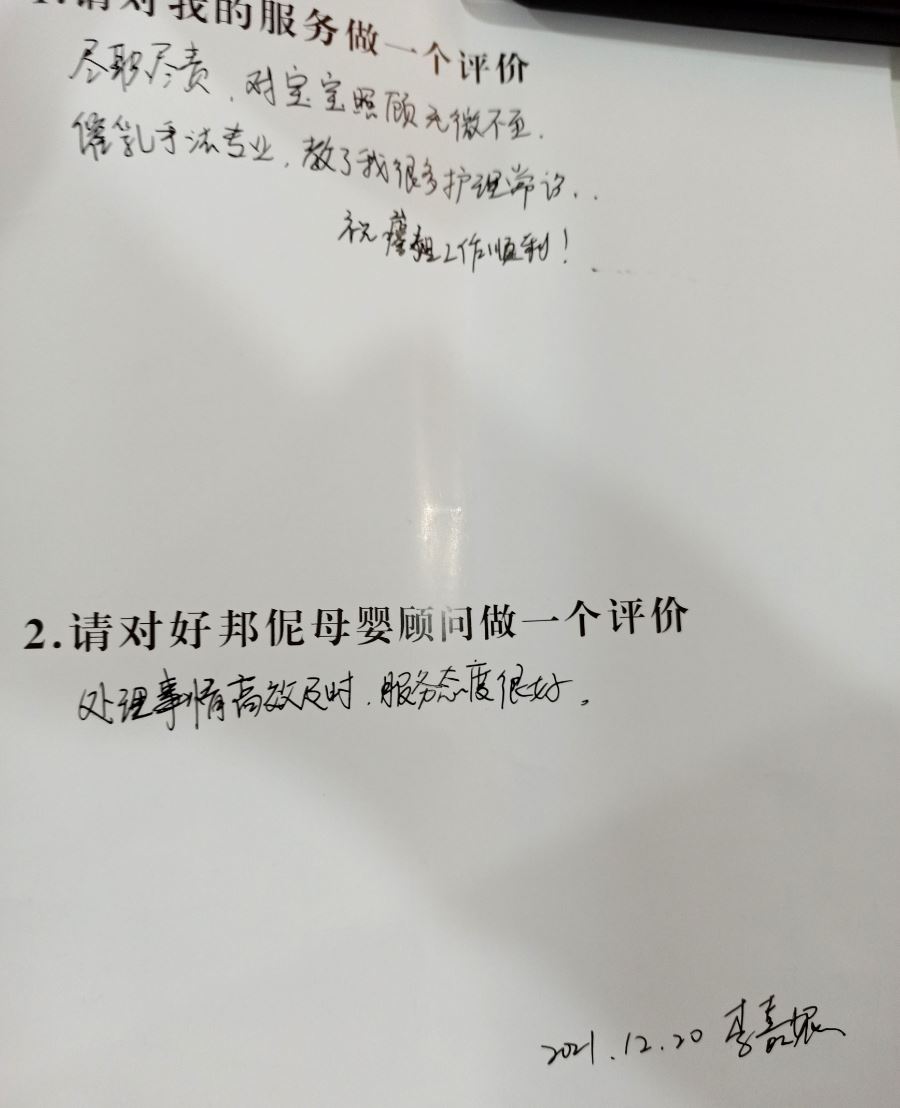 1.请对我的服务做一个评价
尽职尽责,对宝宝照顾无微不至.
催乳手法专业,教了我很多护理常识..
祝姐工作顺利!
2.请对好邦伲母婴顾问做一个评价
处理事情高效及时,服务态度很好。
2021.12.20 李嘉